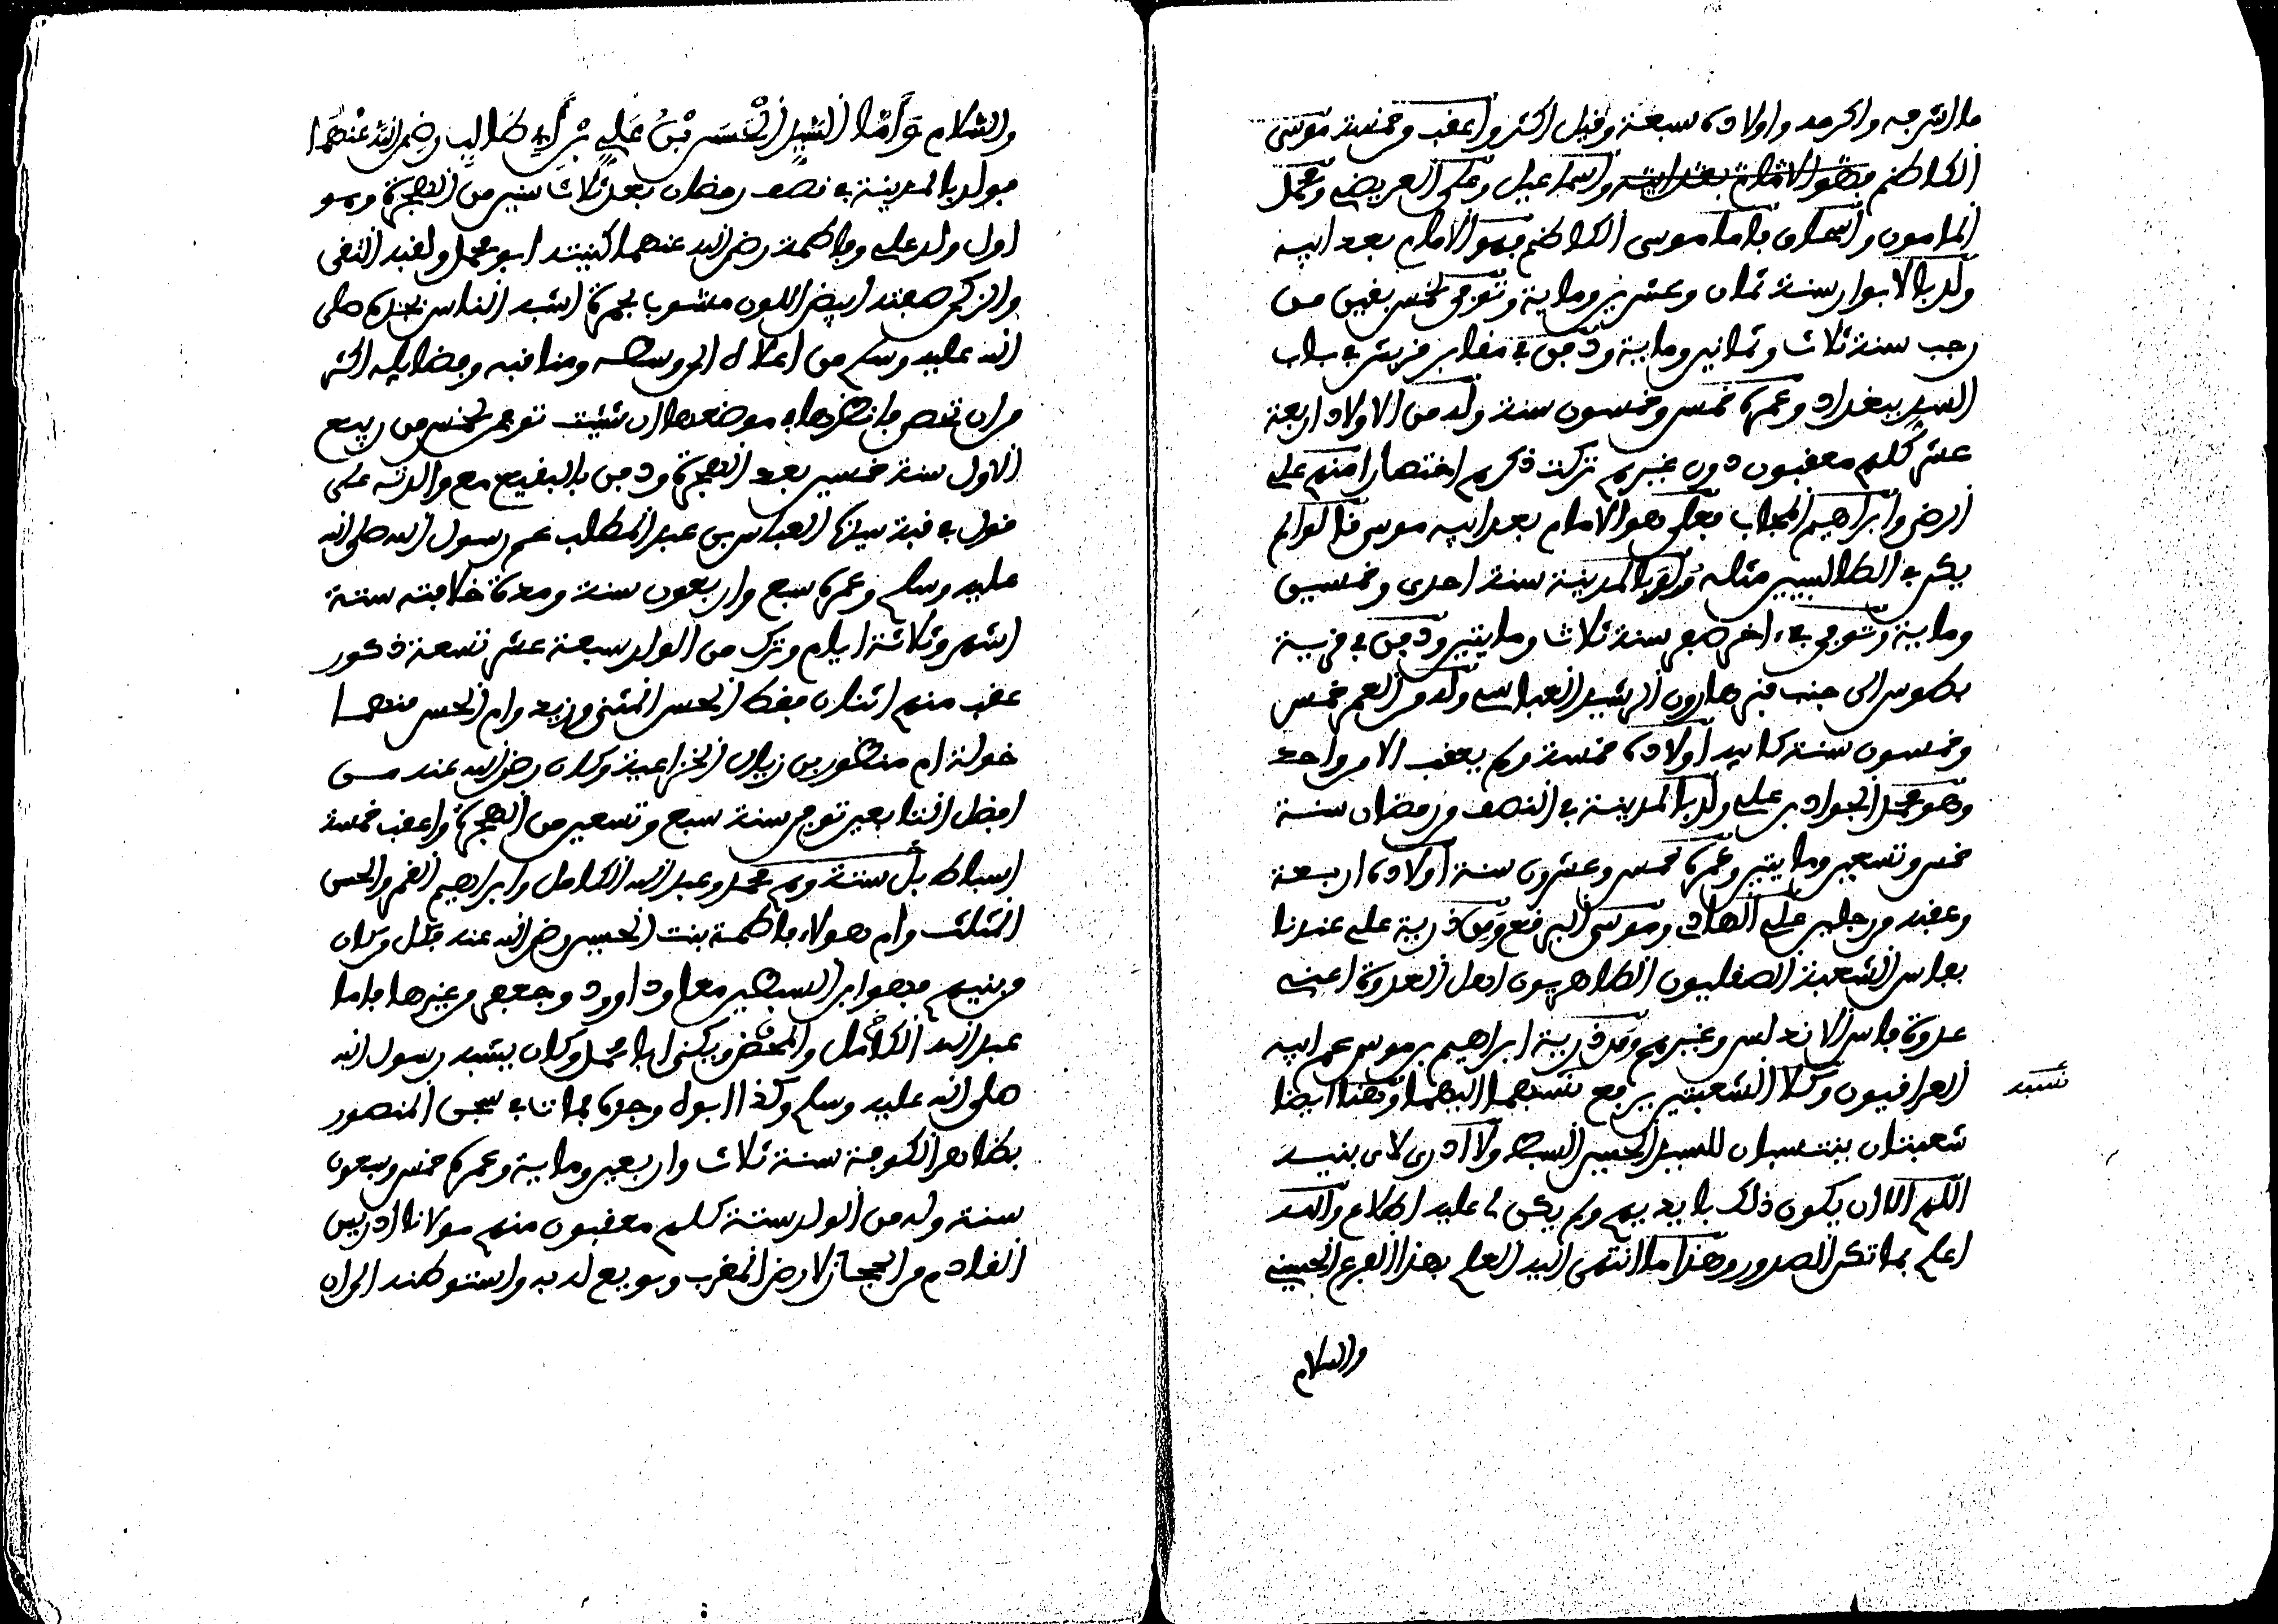 ما اشرفه واكرمه واولاده سبعة وقيل اكثر واعقب وخمسة موسى
الكاظم فهو الامام بعد ابيه واسماعيل وعلي العريضي ومحمد
المامون واسحاق فاما موسى الكاظم فهو الامام بعد ابيه
ولد بالابوار سنة ثمان وعشرين وماية وتوفي لخمس بقين من
رجب سنة ثلاث وثمانين وماية ودفن في مقابر قريش في باب
السير ببغداد وعمره خمس وخمسون سنة ولد من الاولاد اربعة
عشر كلهم معقبون دون غيرهم تركت ذكرهم اختصارا منهم علي
الرضى وابراهيم المجاب فعلي هو الامام بعد ابيه موسى قالوا لم
يكن في الطالبيين مثله ولد بالمدينة سنة احدى وخمسين
وماية وتوفي في اخر صفر سنة ثلاث ومايتين ودفن في قرية
بطوس الى جنب قبر هارون الرشيد العباسي وله من العمر خمس
وخمسون سنة كابيه اولاده خمسة ولم يعقب الا من واحد
وهو محمد الجواد بن علي ولد بالمدينة في النصف من رمضان سنة
خمس وتسعين ومايتين وعمره خمس وعشرون سنة اولاده اربعة
وعقبه من رجلين علي الهادي وموسى المبرقع ومن ذرية علي عندنا
بفاس الشعبة الصقليون الطاهريون اهل العدوة اعني
عدوة فاس الاندلس وغيرهم ومن ذرية ابراهيم بن موسى عم ابيه
العراقيون وكلا الشعبتين يرجع نسبهما اليهما وهنا ايضا
نسبه
شعبتان ينتسبان للسيد الحسين السبط ولا ادري لاي بنيه
اللهم الا ان يكون ذلك بايديهم ولم يكن لي عليه اطلاع والله
اعلم بما تكن الصدور وهذا ما انتهى اليه العلم بهذا الفرع الحسيني
والسلام
والسلام واما السيد الحسن بن علي بن ابي طالب رضي الله عنهما
فولد بالمدينة في نصف رمضان بعد ثلاث سنين من الهجرة وهو
اول ولد علي وفاطمة رضي الله عنهما كنيته ابو محمد ولقبه التقي
والزكي صفته ابيض اللون مشوبا بحمرة اشبه الناس بجده صلى
الله عليه وسلم من اعلاه الى وسطه ومناقبه وفضايله اكثر
من ان تحصر فانظرها في موضعها ان شئت توفي لخمس من ربيع
الاول سنة خمسين بعد الهجرة ودفن بالبقيع مع والدته على
قول في قبة سيدنا العباس بن عبد المطلب عم رسول الله صلى الله
عليه وسلم وعمره سبع واربعون سنة ومدة خلافته ستة
اشهر وثلاثة ايام وترك من الولد سبعة عشر تسعة ذكور
عقب منهم اثنان فقط الحسن المثنى وزيد وام الحسن منهما
خولة ام منظور بن زيان الخزاعية وكان رضي الله عنه من
افضل التابعين توفي سنة سبع وتسعين من الهجرة واعقب خمسة
اسباط بل ستة وهم محمد وعبد الله الكامل وابراهيم الغمر والحسن
المثلث وام هولاء فاطمة بنت الحسين رضي الله عنه فكل وكان
من بنيهم فهو ابن السبطين معا وداوود وجعفر من غيرها فاما
عبد الله الكامل والمحض ويكنى ابا محمد وكان يشبه رسول الله
صلى الله عليه وسلم وكذا ابوه وجده مات في سجن المنصور
بظاهر الكوفة سنة ثلاث واربعين وماية وعمره خمس وسبعون
سنة وله من الولد ستة كلهم معقبون منهم مولانا ادريس
القادم من الحجاز لارض المغرب وبويع له به واستوطنه الى ان